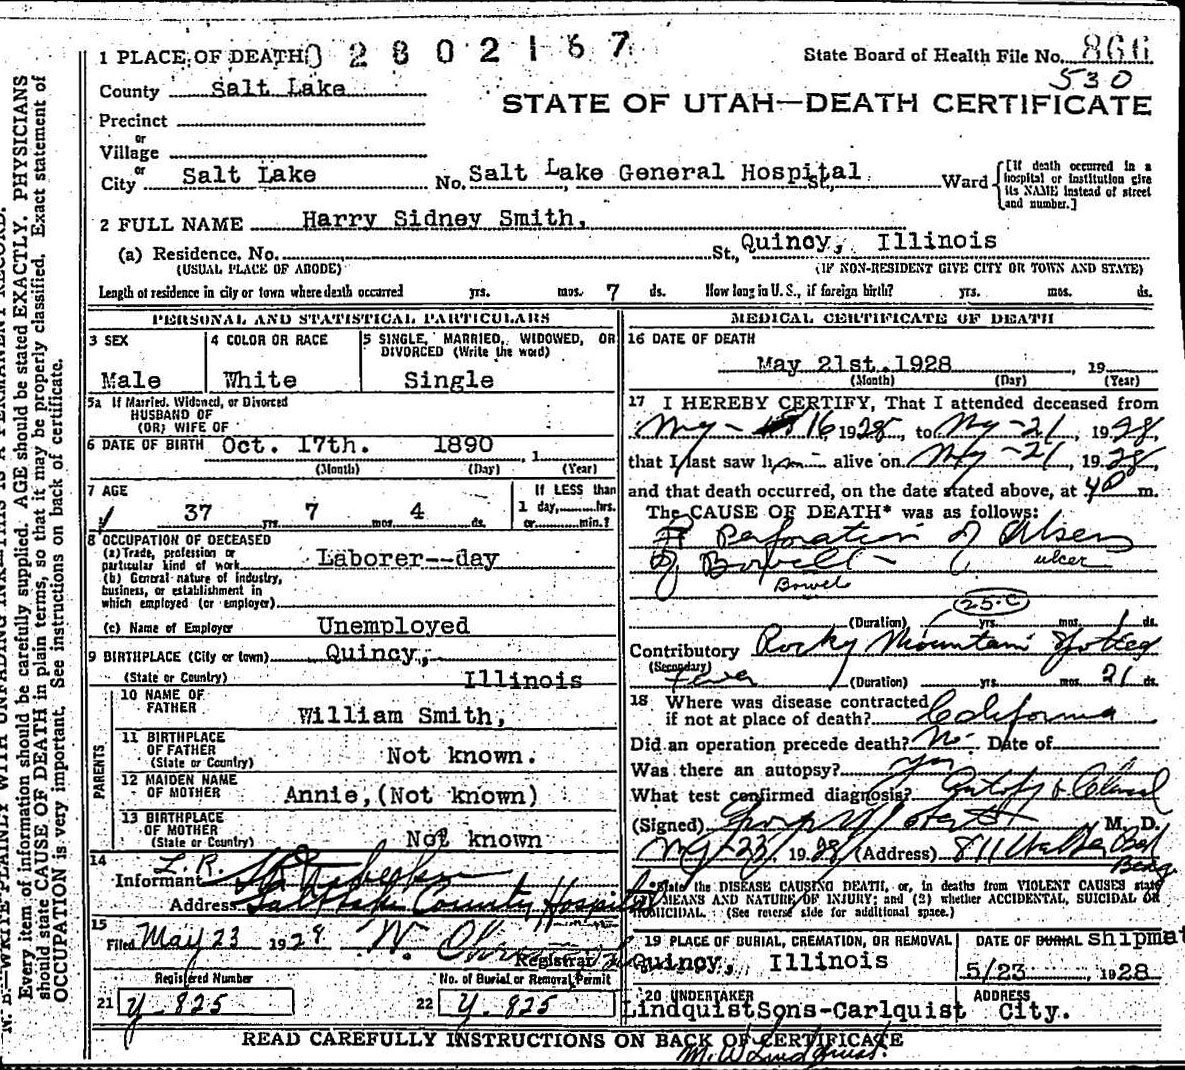 1 PLACE OF DEATH 0 2 8 0 2 1 6 7
State Board of Health File No. 866
530
County Salt Lake
STATE OF UTAH—DEATH CERTIFICATE
Precinct
or
Village
or
City Salt Lake No. Salt Lake General Hospital St., Ward
[If death occurred in a
hospital or institution give
its NAME instead of street
and number.]
2 FULL NAME Harry Sidney Smith,
(a) Residence. No. St., Quincy, Illinois
(USUAL PLACE OF ABODE) (IF NON-RESIDENT GIVE CITY OR TOWN AND STATE)
Length of residence in city or town where death occurred yrs. mos. 7 ds. How long in U. S., if foreign birth? yrs. mos. ds.
PERSONAL AND STATISTICAL PARTICULARS
3 SEX
Male
4 COLOR OR RACE
White
5 SINGLE, MARRIED, WIDOWED, OR
DIVORCED (Write the word)
Single
5a If Married, Widowed, or Divorced
HUSBAND OF
(OR) WIFE OF
6 DATE OF BIRTH Oct. 17th. 1890 , 1
(Month) (Day) (Year)
7 AGE
37 yrs. 7 mos. 4 ds.
If LESS than
1 day, hrs.
or min.?
8 OCCUPATION OF DECEASED
(a) Trade, profession or
particular kind of work Laborer--day
(b) General nature of industry,
business, or establishment in
which employed (or employer)
(c) Name of Employer Unemployed
9 BIRTHPLACE (City or town) Quincy,
(State or Country) Illinois
PARENTS
10 NAME OF
FATHER
William Smith,
11 BIRTHPLACE
OF FATHER
(State or Country) Not known.
12 MAIDEN NAME
OF MOTHER Annie, (Not known)
13 BIRTHPLACE
OF MOTHER
(State or Country) Not known
14
Informant L. R.
Address Salt Lake County Hospital
15
Filed May 23 1928 W.
Registrar
Registered Number
21 Y-825
No. of Burial or Removal Permit
22 Y-825
MEDICAL CERTIFICATE OF DEATH
16 DATE OF DEATH
May 21st. 1928 , 19
(Month) (Day) (Year)
17 I HEREBY CERTIFY, That I attended deceased from
May - 16 1928, to May -21, 1928,
that I last saw him alive on May -21, 1928,
and that death occurred, on the date stated above, at m.
The CAUSE OF DEATH* was as follows:
Perforation of Ulsers
of Bowell - ulcer
Bowel
25-C
(Duration) yrs. mos. ds.
Contributory Rocky Mountain Spotted
(Secondary) Fever (Duration) yrs. mos. 21 ds.
18 Where was disease contracted
if not at place of death? California
Did an operation precede death? No. Date of
Was there an autopsy? yes
What test confirmed diagnosis?
(Signed) M. D.
May-23, 1928 (Address) 811 Walker Bank
*State the DISEASE CAUSING DEATH, or, in deaths from VIOLENT CAUSES state
MEANS AND NATURE OF INJURY; and (2) whether ACCIDENTAL, SUICIDAL OR
HOMICIDAL. (See reverse side for additional space.)
19 PLACE OF BURIAL, CREMATION, OR REMOVAL
Quincy, Illinois
DATE OF BURIAL shipmet
5/23 1928
20 UNDERTAKER
LindquistSons-Carlquist
ADDRESS
City.
READ CAREFULLY INSTRUCTIONS ON BACK OF CERTIFICATE
N. B.—WRITE PLAINLY WITH UNFADING INK—THIS IS A PERMANENT RECORD.
Every item of information should be carefully supplied. AGE should be stated EXACTLY. PHYSICIANS
should state CAUSE OF DEATH in plain terms, so that it may be properly classified. Exact statement of
OCCUPATION is very important. See instructions on back of certificate.